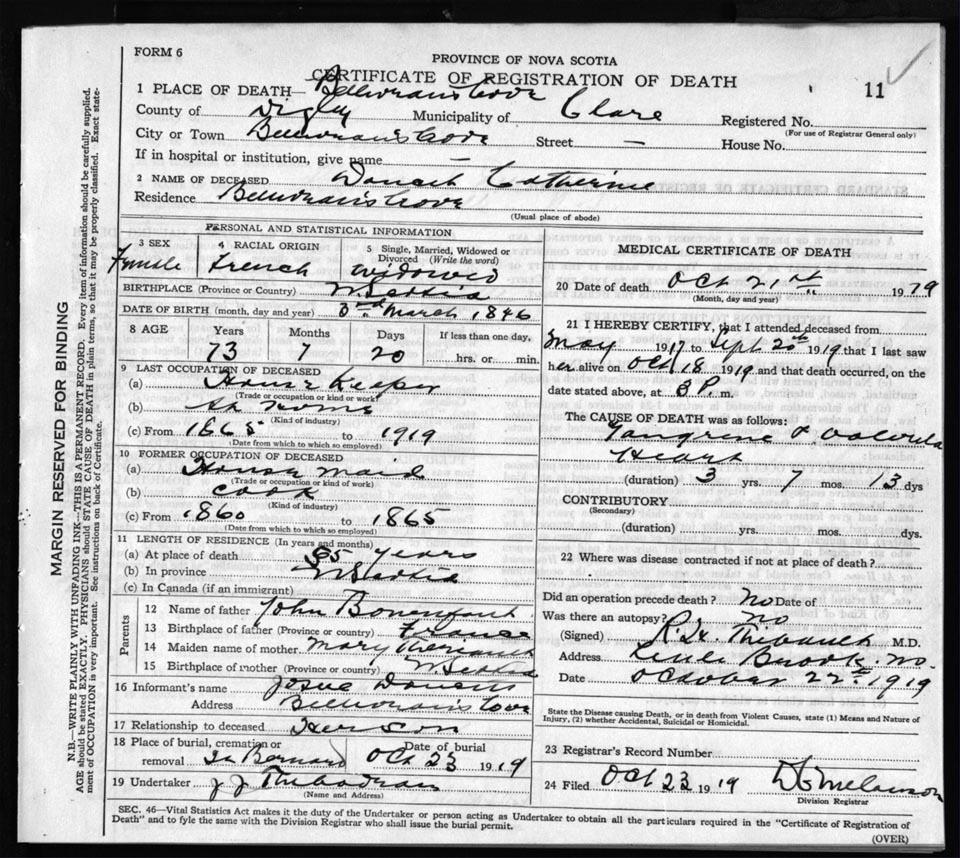 FORM 6
PROVINCE OF NOVA SCOTIA
CERTIFICATE OF REGISTRATION OF DEATH
11
1 PLACE OF DEATH— Belliveau's Cove
County of Digby Municipality of Clare Registered No.
(For use of Registrar General only)
City or Town Belliveau's Cove Street — House No.
If in hospital or institution, give name —
2 NAME OF DECEASED Doucet Catherine
Residence Belliveau's Cove
(Usual place of abode)
PERSONAL AND STATISTICAL INFORMATION
3 SEX 4 RACIAL ORIGIN 5 Single, Married, Widowed or Divorced (Write the word)
Female French widowed
BIRTHPLACE (Province or Country) N. Scotia
DATE OF BIRTH (month, day and year) 3rd March 1846
8 AGE Years Months Days If less than one day,
73 7 20 hrs. or min.
9 LAST OCCUPATION OF DECEASED
(a) House Keeper
(Trade or occupation or kind of work)
(b) at home
(Kind of industry)
(c) From 1865 to 1919
(Date from which to which so employed)
10 FORMER OCCUPATION OF DECEASED
(a) House maid
(Trade or occupation or kind of work)
(b) cook
(Kind of industry)
(c) From 1860 to 1865
(Date from which to which so employed)
11 LENGTH OF RESIDENCE (In years and months)
(a) At place of death 65 years
(b) In province N Scotia
(c) In Canada (if an immigrant)
Parents
12 Name of father John Bonenfant
13 Birthplace of father (Province or country) France
14 Maiden name of mother Mary Theriault
15 Birthplace of mother (Province or country) N. Scotia
16 Informant's name Josue Doucet
Address Belliveau's Cove
17 Relationship to deceased Her Son
18 Place of burial, cremation or removal St Bernard Date of burial Oct 23 1919
19 Undertaker J J Thibodeau
(Name and Address)
MEDICAL CERTIFICATE OF DEATH
20 Date of death Oct 21st 1919
(Month, day and year)
21 I HEREBY CERTIFY, that I attended deceased from
May 1917 to Sept 20th 1919 that I last saw
her alive on Oct 18 1919 and that death occurred, on the
date stated above, at 3 P. m.
The CAUSE OF DEATH was as follows:
Gangrene & Valvula
Heart
(duration) 3 yrs. 7 mos. 13 dys
CONTRIBUTORY
(Secondary)
(duration) yrs. mos. dys.
22 Where was disease contracted if not at place of death?
Did an operation precede death? No Date of
Was there an autopsy? No
(Signed) Thibault M.D.
Address Little Brook
Date October 22nd 1919
State the Disease causing Death, or in death from Violent Causes, state (1) Means and Nature of
Injury, (2) whether Accidental, Suicidal or Homicidal.
23 Registrar's Record Number
24 Filed Oct 23 1919 Melanson
Division Registrar
SEC. 46—Vital Statistics Act makes it the duty of the Undertaker or person acting as Undertaker to obtain all the particulars required in the "Certificate of Registration of
Death" and to fyle the same with the Division Registrar who shall issue the burial permit.
(OVER)
MARGIN RESERVED FOR BINDING
N.B.—WRITE PLAINLY WITH UNFADING INK—THIS IS A PERMANENT RECORD. Every item of information should be carefully supplied.
AGE should be stated EXACTLY. PHYSICIANS should STATE CAUSE OF DEATH in plain terms, so that it may be properly classified. Exact state-
ment of OCCUPATION is very important. See instructions on back of Certificate.